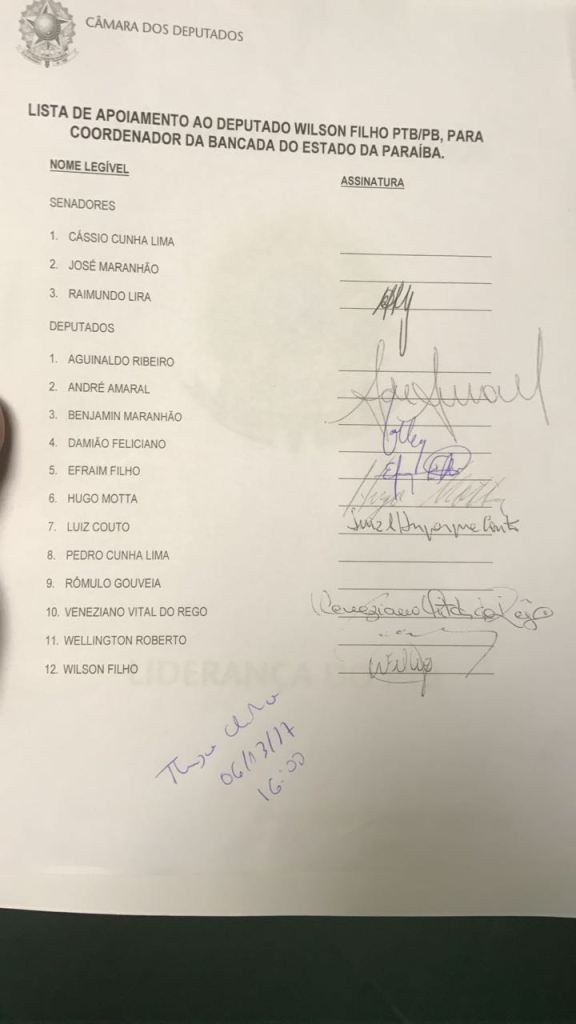 CÂMARA DOS DEPUTADOS
LISTA DE APOIAMENTO AO DEPUTADO WILSON FILHO PTB/PB, PARA
COORDENADOR DA BANCADA DO ESTADO DA PARAÍBA.
NOME LEGÍVEL ASSINATURA
SENADORES
1. CÁSSIO CUNHA LIMA
2. JOSÉ MARANHÃO
3. RAIMUNDO LIRA
DEPUTADOS
1. AGUINALDO RIBEIRO
2. ANDRÉ AMARAL
3. BENJAMIN MARANHÃO
4. DAMIÃO FELICIANO
5. EFRAIM FILHO
6. HUGO MOTTA Hugo Motta
7. LUIZ COUTO
8. PEDRO CUNHA LIMA
9. RÔMULO GOUVEIA
10. VENEZIANO VITAL DO REGO Veneziano Vital do Rego
11. WELLINGTON ROBERTO
12. WILSON FILHO
LIDERANÇA DO
16:00